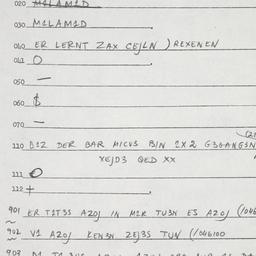 020 M1LAM1D
030 M1LAM1D
040 ER LERNT ZAX CEJLN ) REXENEN
041 O
050 —
060 $
070 —
110 D12 DER BAR MICVS BIN 2X2 G3GANGSN
XEJD3 QED XX
111 O
112 +
901 ER T1T3S AZOJ IN M1R TU3N ES AZOJ (/046
902 V1 AZOJ KEN3N ZEJ3S TUN (/046100
903